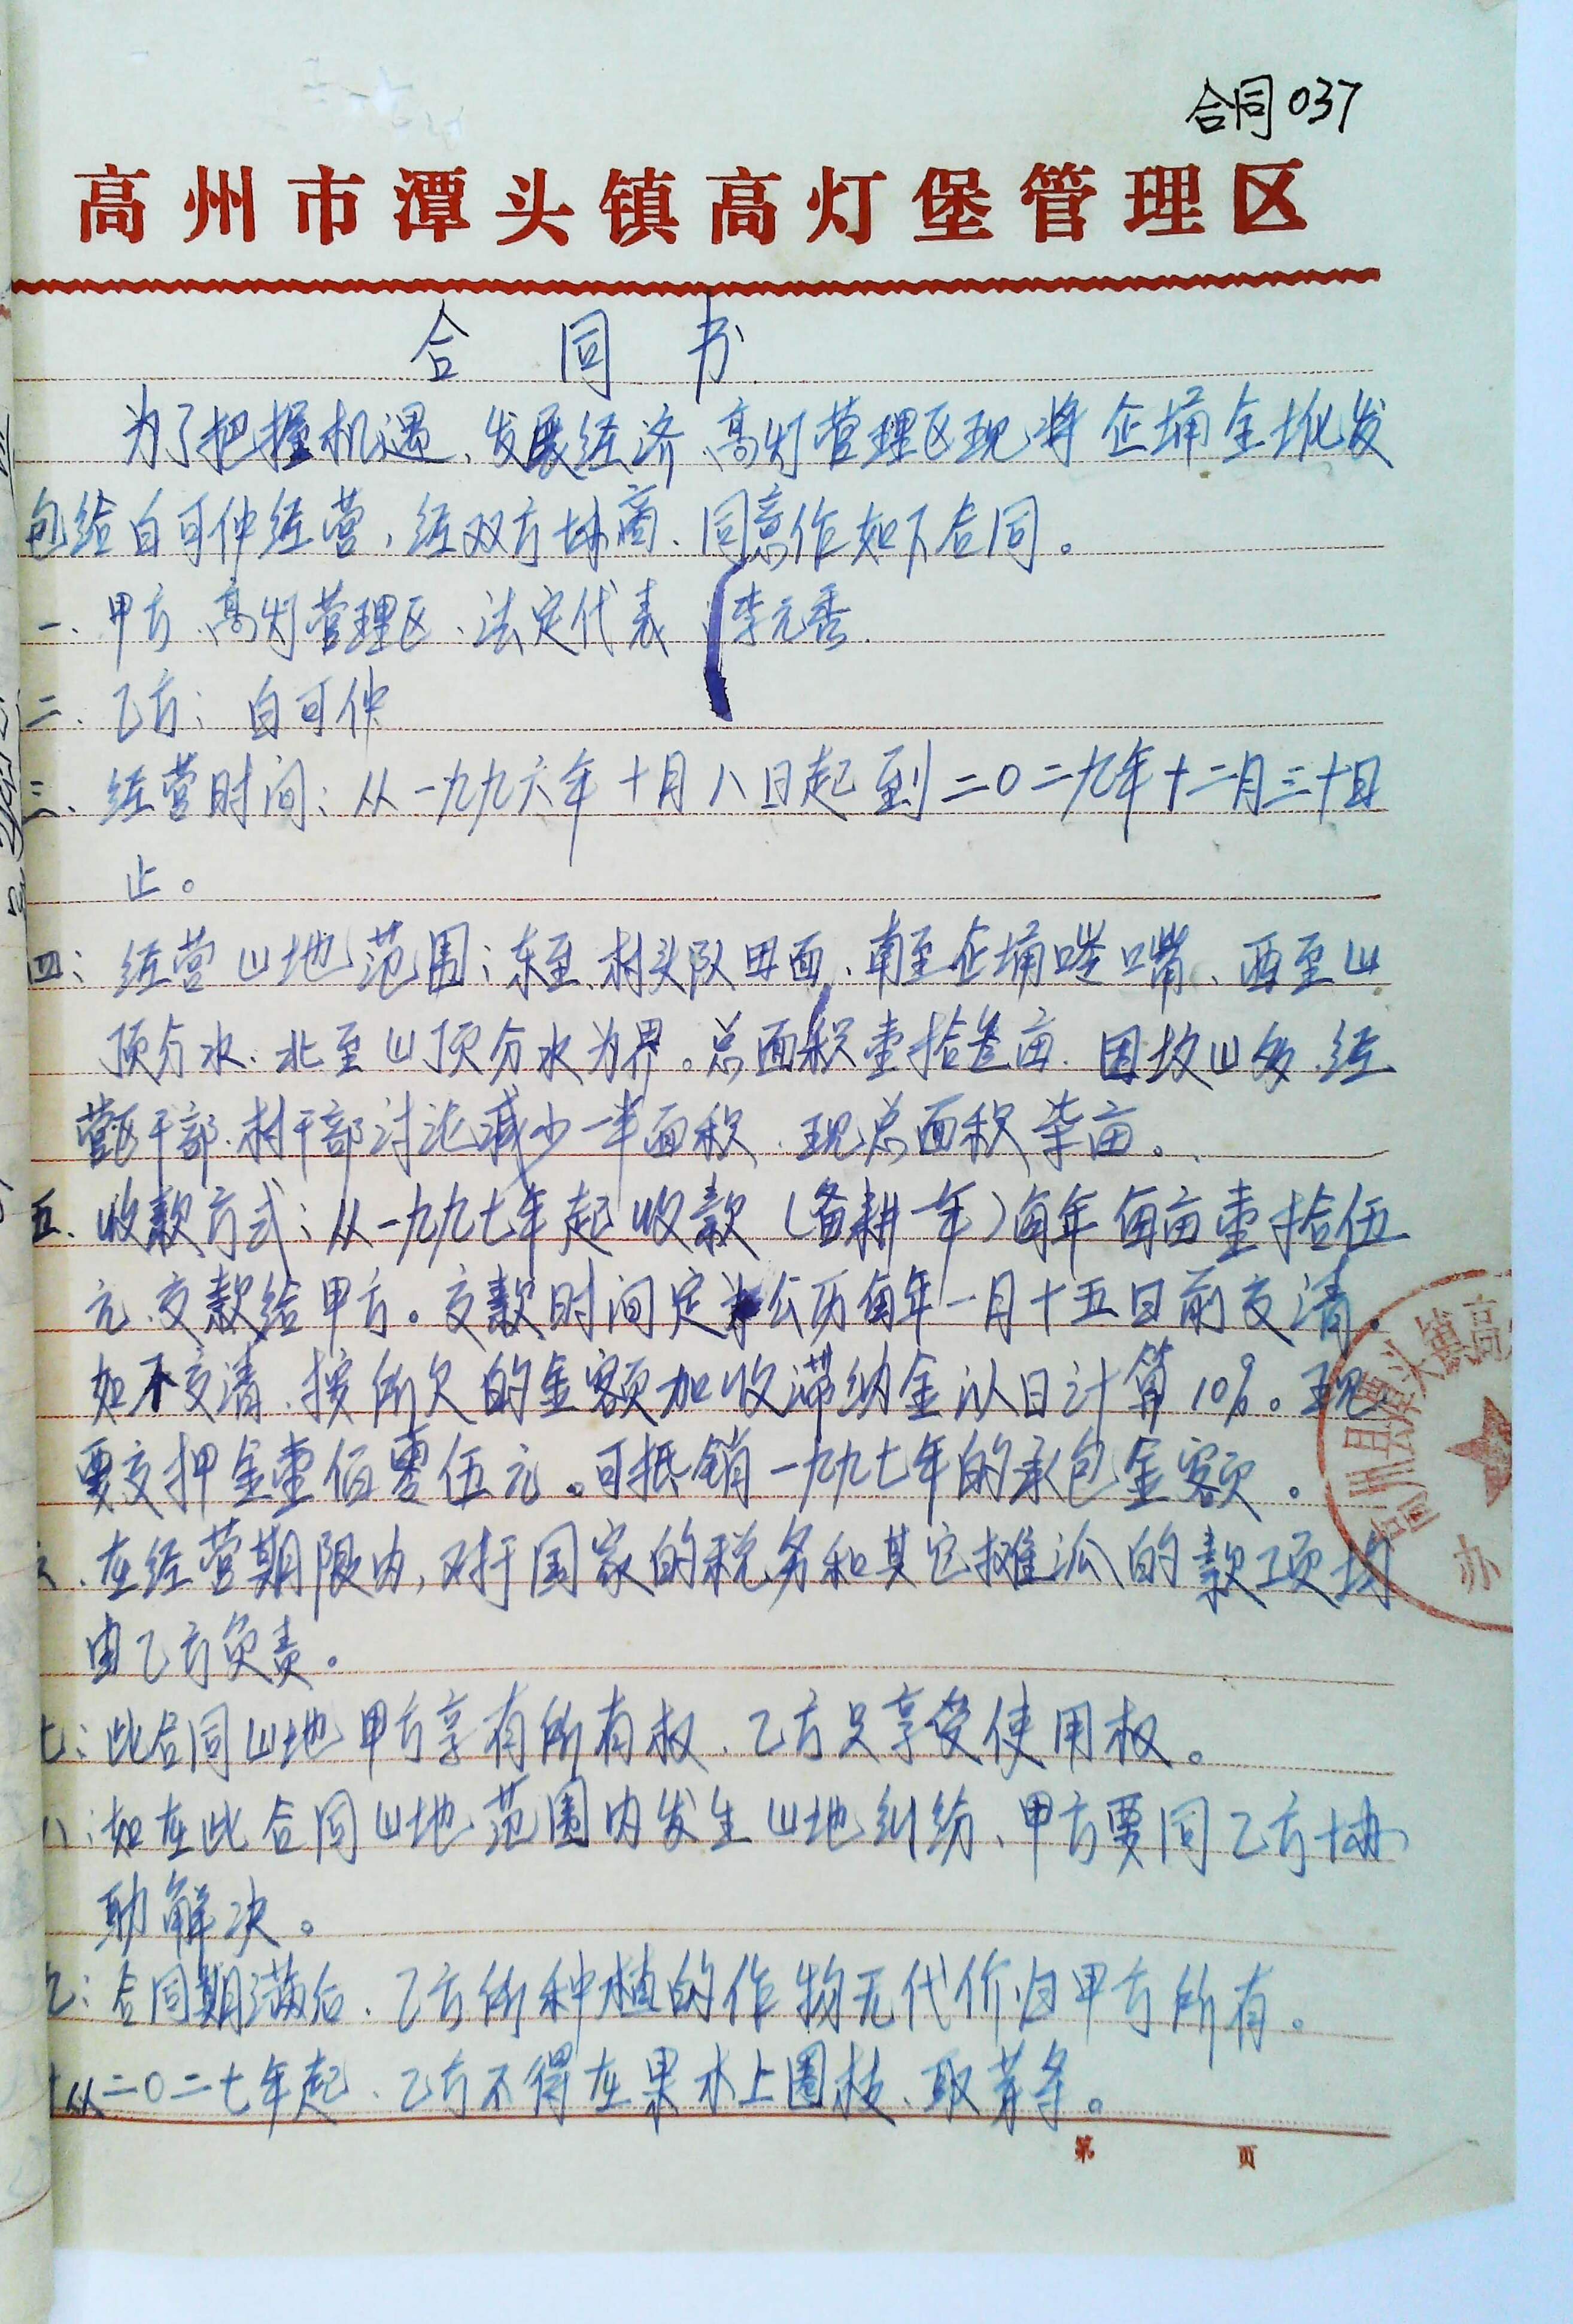 合同037
高州市潭头镇高灯堡管理区
合同书
为了把握机遇、发展经济、高灯管理区现将企埇全垅发
包给白可仲经营，经双方协商、同意作如下合同。
一、甲方、高灯管理区、法定代表 李元香.
二、乙方：白可仲
三、经营时间：从一九九六年十月八日起至到二〇二九年十二月三十日
止。
四：经营山地范围：东至村头队田面、南至企埇嘴、西至山
顶分水、北至山顶分水为界。总面积壹拾叁亩、因坟山多、经
营区干部、村干部讨论减少一半面积、现总面积柒亩。
五、收款方式：从一九九七年起收款（备耕一年）每年每亩壹拾伍
元、交款给甲方。交款时间定为公历每年一月十五日前交清。
如不交清、按所欠的金额加收滞纳金以日计算10%。现
要交押金壹佰零伍元。可抵销一九九七年的承包金额。
六、在经营期限内，对于国家的税务和其它摊派的款项均
由乙方负责。
七：此合同山地甲方享有所有权、乙方只享受使用权。
八：如在此合同山地范围内发生山地纠纷、甲方要同乙方协
助解决。
九：合同期满后、乙方所种植的作物无代价归甲方所有。
十从二〇二七年起、乙方不得在果木上圈枝、取芽条。
高州县潭头镇高
办
第 页